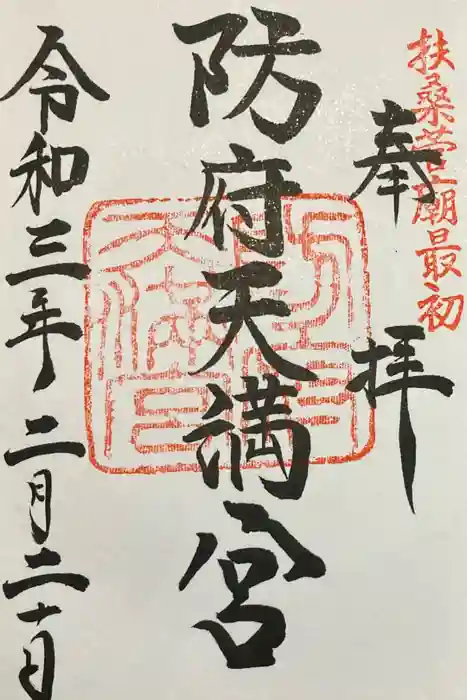 扶桑菅廟最初
奉拝
防府天満宮
防府天満宮
令和三年二月二十日